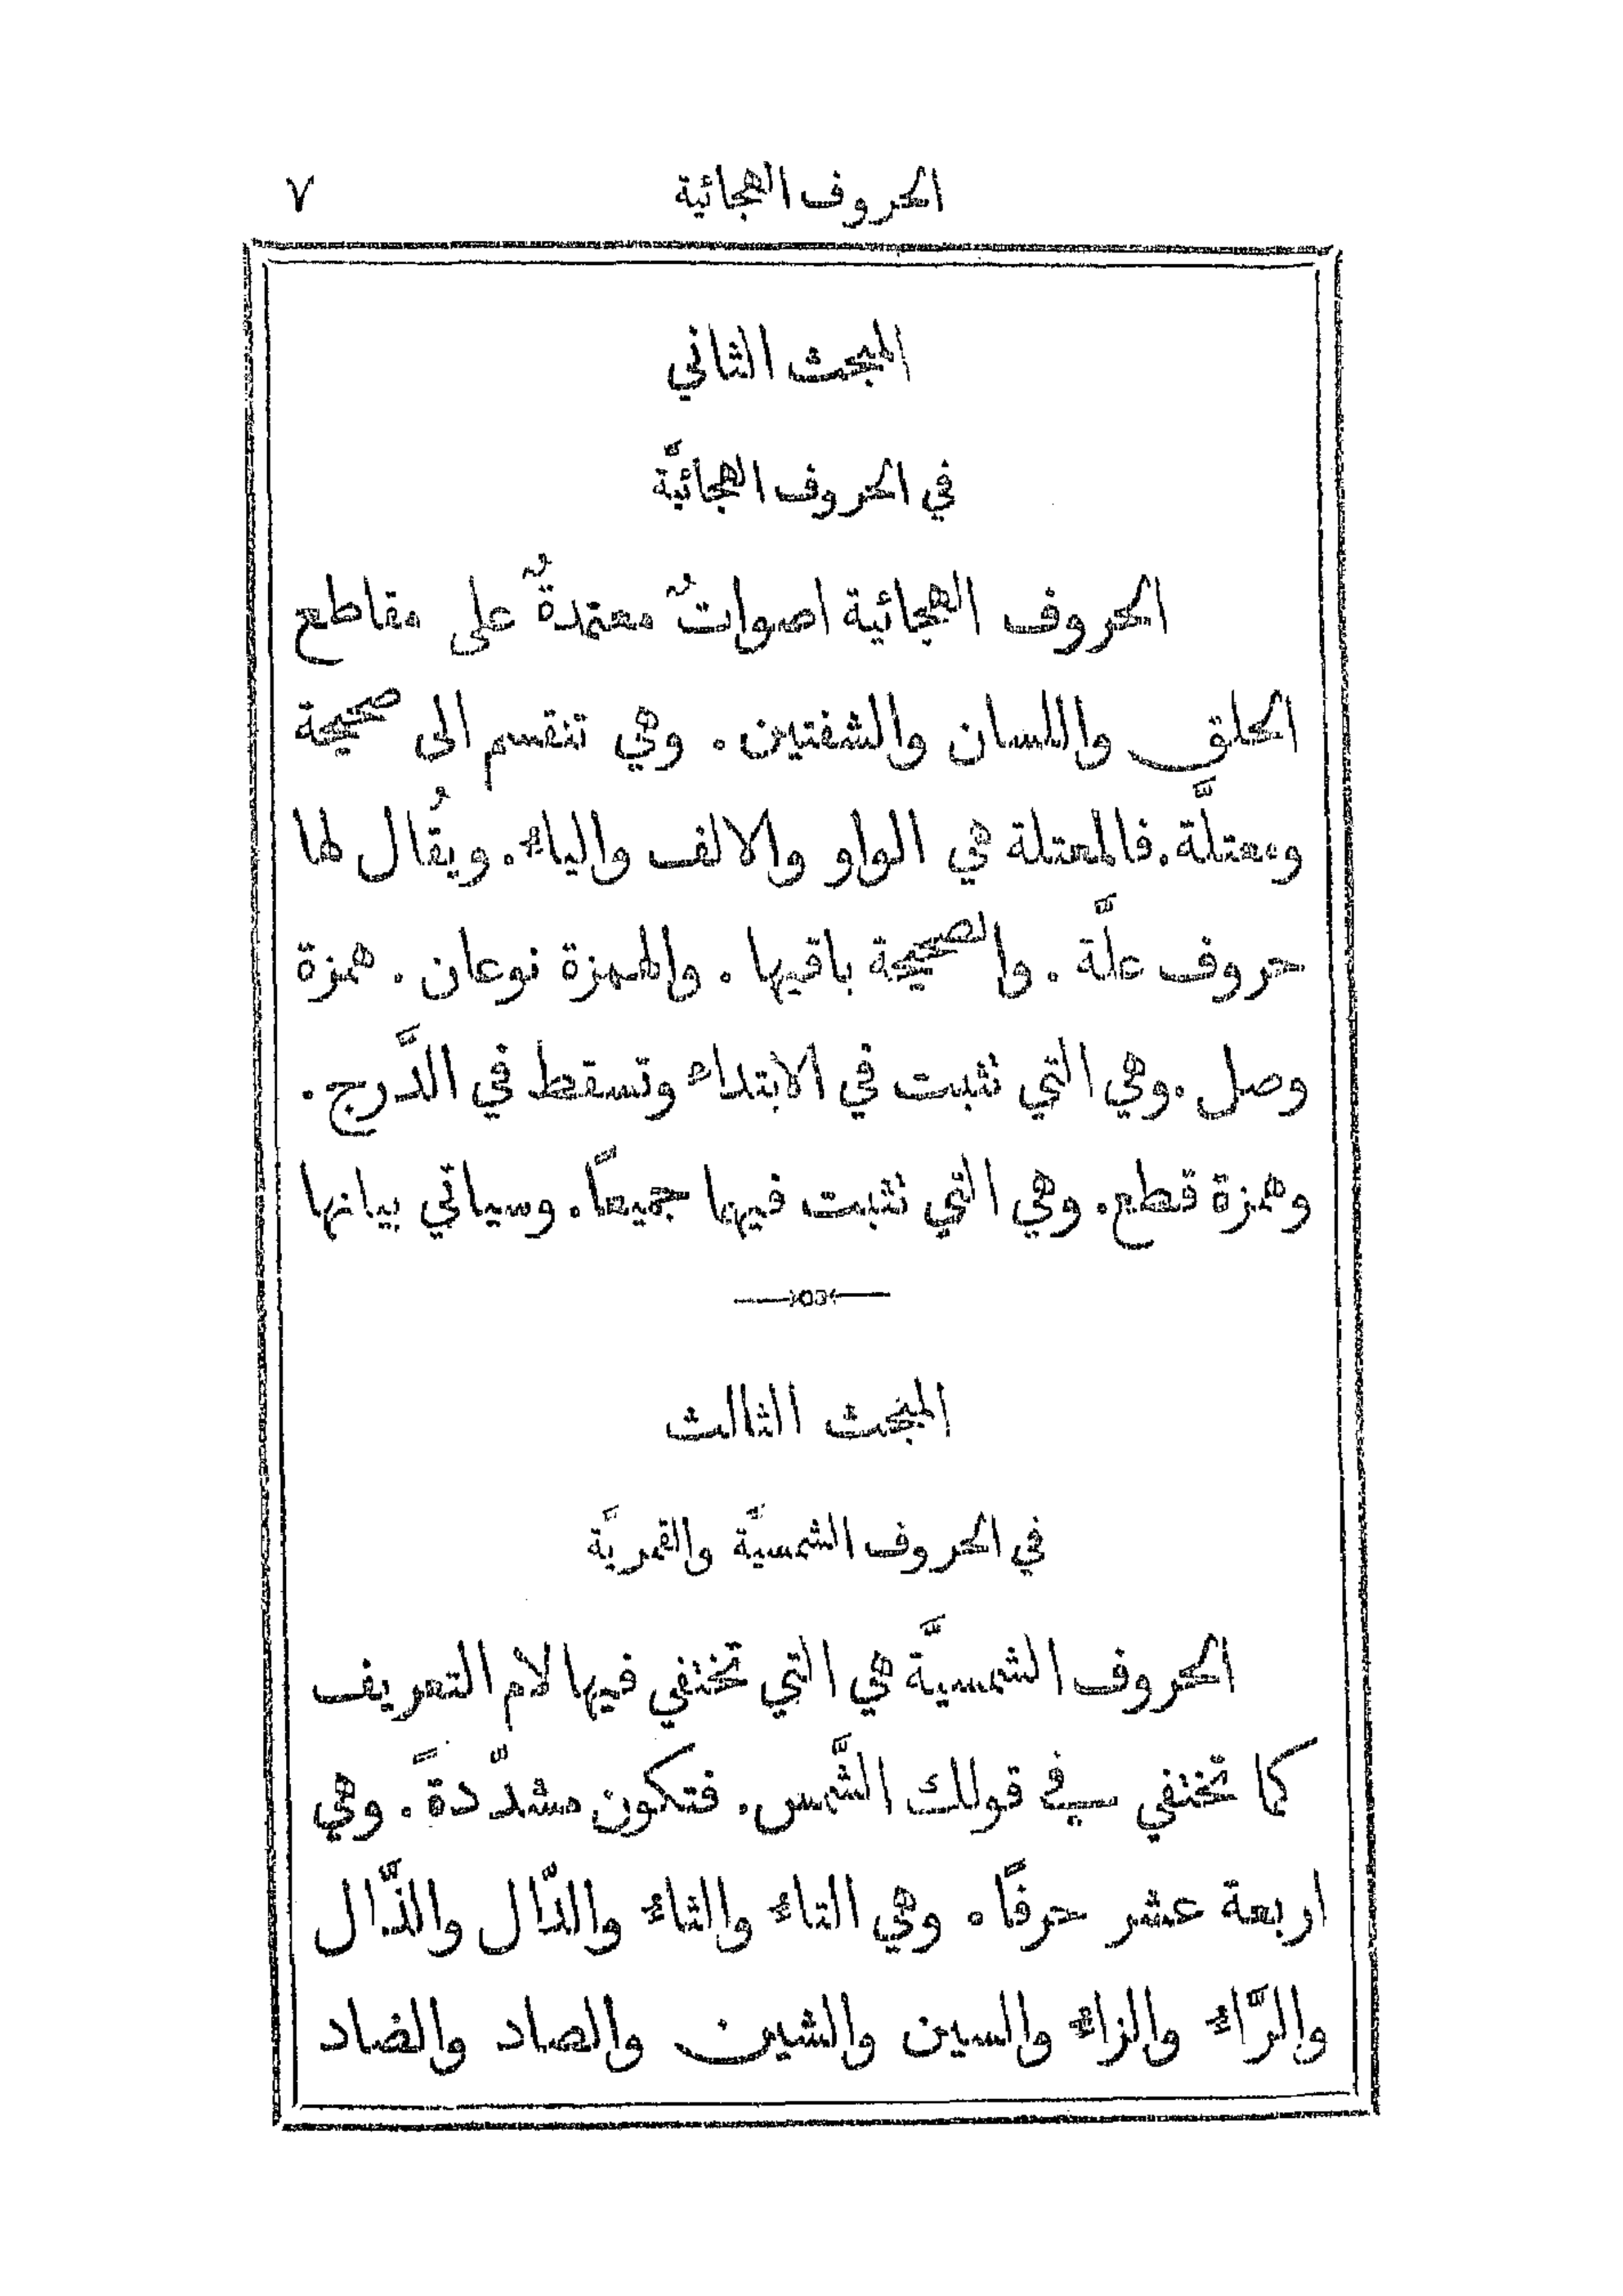 الحروف الهجائية ٧
المبحث الثاني
في الحروف الهجائيَّة
الحروف الهجائية اصواتٌ معتمدةٌ على مقاطع
الحلق واللسان والشفتين . وهي تنقسم الى صحيحة
ومعتلَّة . فالمعتلة هي الواو والالف والياء . ويُقال لها
حروف علَّة . والصحيحة باقيها . والهمزة نوعان . همزة
وصل . وهي التي تثبت في الابتداء وتسقط في الدَّرج .
وهمزة قطع . وهي التي تثبت فيها جميعاً . وسياتي بيانها
المبحث الثالث
في الحروف الشمسيَّة والقمريَّة
الحروف الشمسيَّة هي التي تختفي فيها لام التعريف
كما تختفي في قولك الشَّمس . فتكون مشدَّدةً . وهي
اربعة عشر حرفًا . وهي التاء والثاء والدَّال والذَّال
والرَّاء والزاء والسين والشين والصاد والضاد